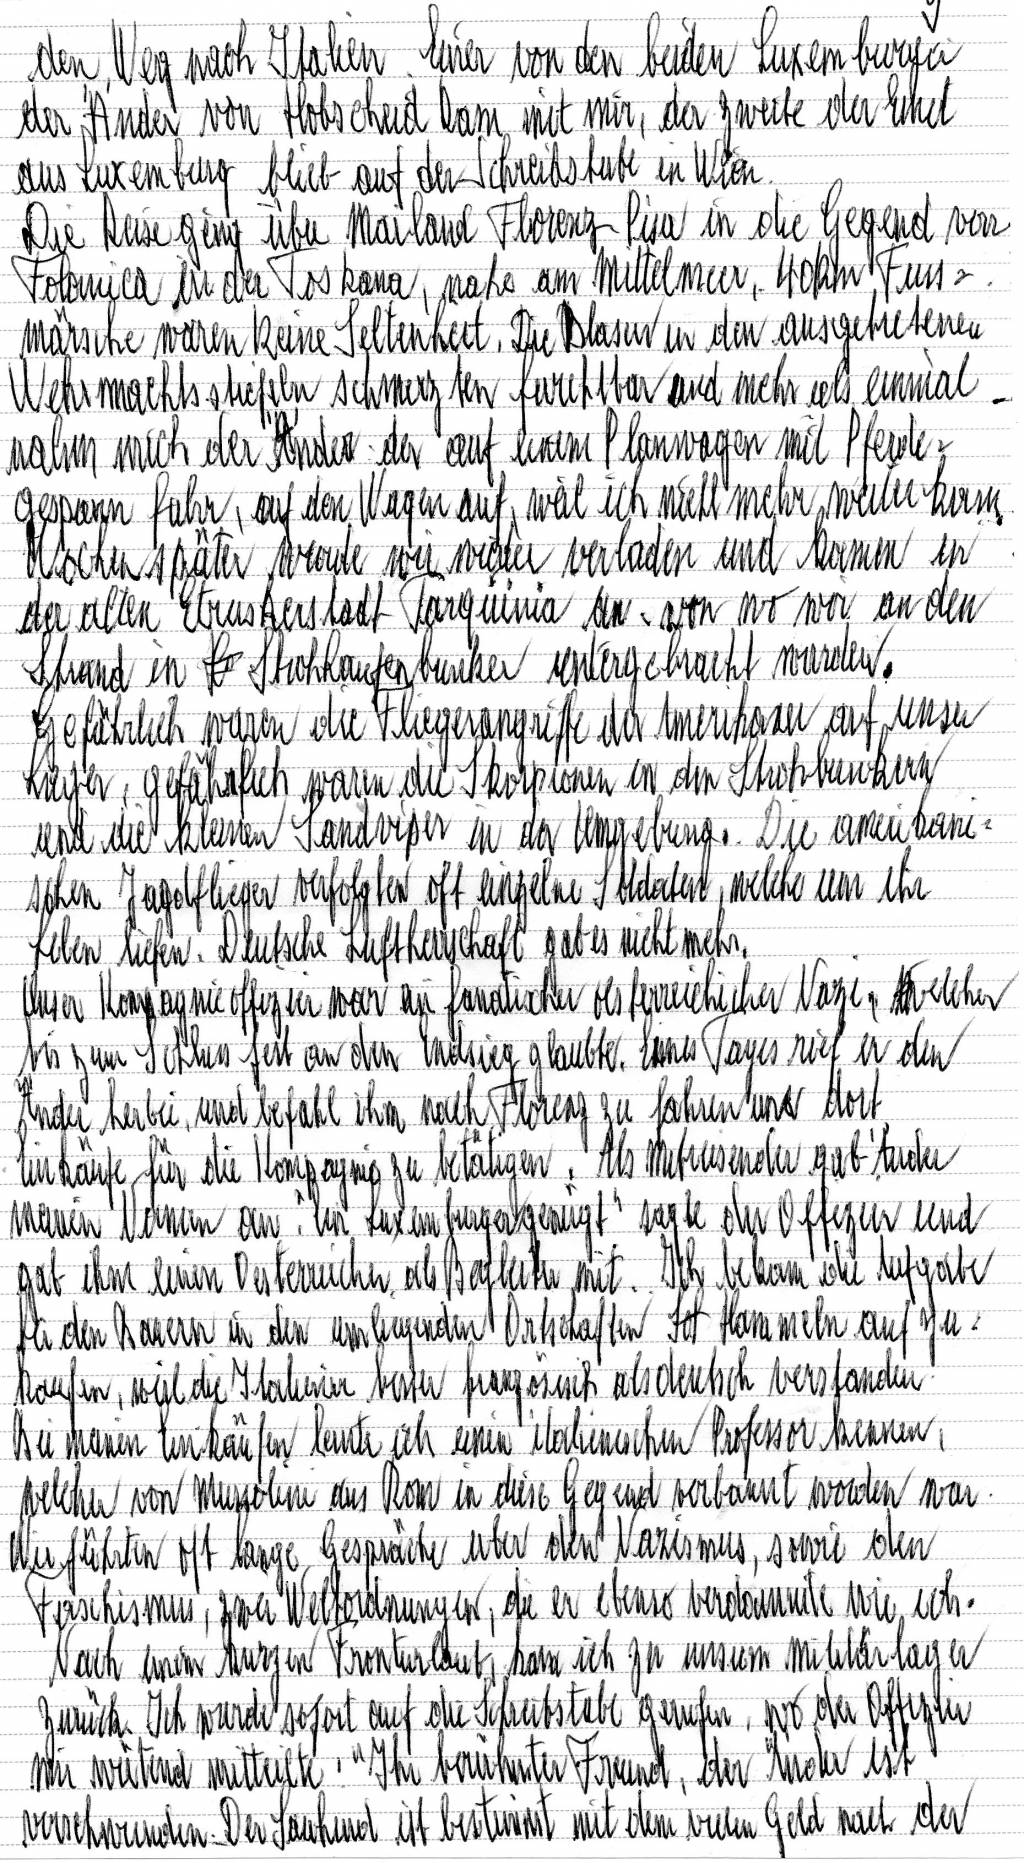 9
den Weg nach Italien. Einer von den beiden Luxemburger
der "Änder" von Hobscheid kam mit mir, der zweite der Emil
aus Luxemburg blieb auf der Schreibstube in Wien.
Die Reise ging über Mailand Florenz Pisa in die Gegend von
Folonica in der Toskana, nahe am Mittelmeer, 40km Fuss=
märsche waren keine Seltenheit. Die Blasen in den ausgetretenen
Wehrmachtsstiefeln schmerzten furchtbar und mehr als einmal
nahm mich der "Änder" der auf einem Planwagen mit Pferde=
gespann fuhr, auf den Wagen auf, weil ich nicht mehr weiter kam.
Wochen später wurde wir wieder verladen und kamen in
der alten Etruskerstadt Tarquinia an. von wo wir an den
Strand in Strohhaufenbunker untergebracht wurden.
Gefährlich waren die Fliegerangriffe der Amerikaner auf unser
Lager, gefährlich waren die Skorpionen in den Strohbunkern
und die kleinen Sandviper in der Umgebung. Die amerikani=
schen Jagdflieger verfolgten oft einzelne Soldaten, welche um ihr
Leben liefen. Deutsche Luftherrschaft gab es nicht mehr.
Unser Kompagnieoffizier war ein fanatischer oesterreichicher Nazi, welcher
bis zum Schluss fest an den Endsieg glaubte. Eines Tages rief er den
Änder herbei, und befahl ihm nach Florenz zu fahren und dort
Einkäufe für die Kompagnie zu betätigen. Als Mitreisender gab Änder
meinen Namen an. "Ein Luxemburger genügt" sagte der Offizier und
gab ihm einen Oesterreicher als Begleiter mit. Ich bekam die Aufgabe
bei den Bauern in den umliegenden Ortschaften Hammeln aufzu=
kaufen, weil die Italiener besser französisch als deutsch verstanden.
Bei meinen Einkäufen lernte ich einen italienischen Professor kennen,
welcher von Mussolini aus Rom in diese Gegend verbannt worden war.
Wir führten oft lange Gespräche über den Nazismus, sowie den
Faschismus, zwei Weltordnungen, die er ebenso verdammte wie ich.
Nach einem kurzen Fronturlaub, kam ich zu unserm Militärlager
zurück. Ich wurde sofort auf die Schreibstube gerufen, wo der Offizier
mir wütend mitteilte: "Ihr berühmter Freund, der Änder ist
verschwunden. Der Sauhund ist bestimmt mit dem vielen Geld nach der